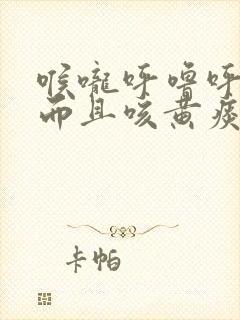 喉咙呼噜呼
而且咳黄痰
卡帕